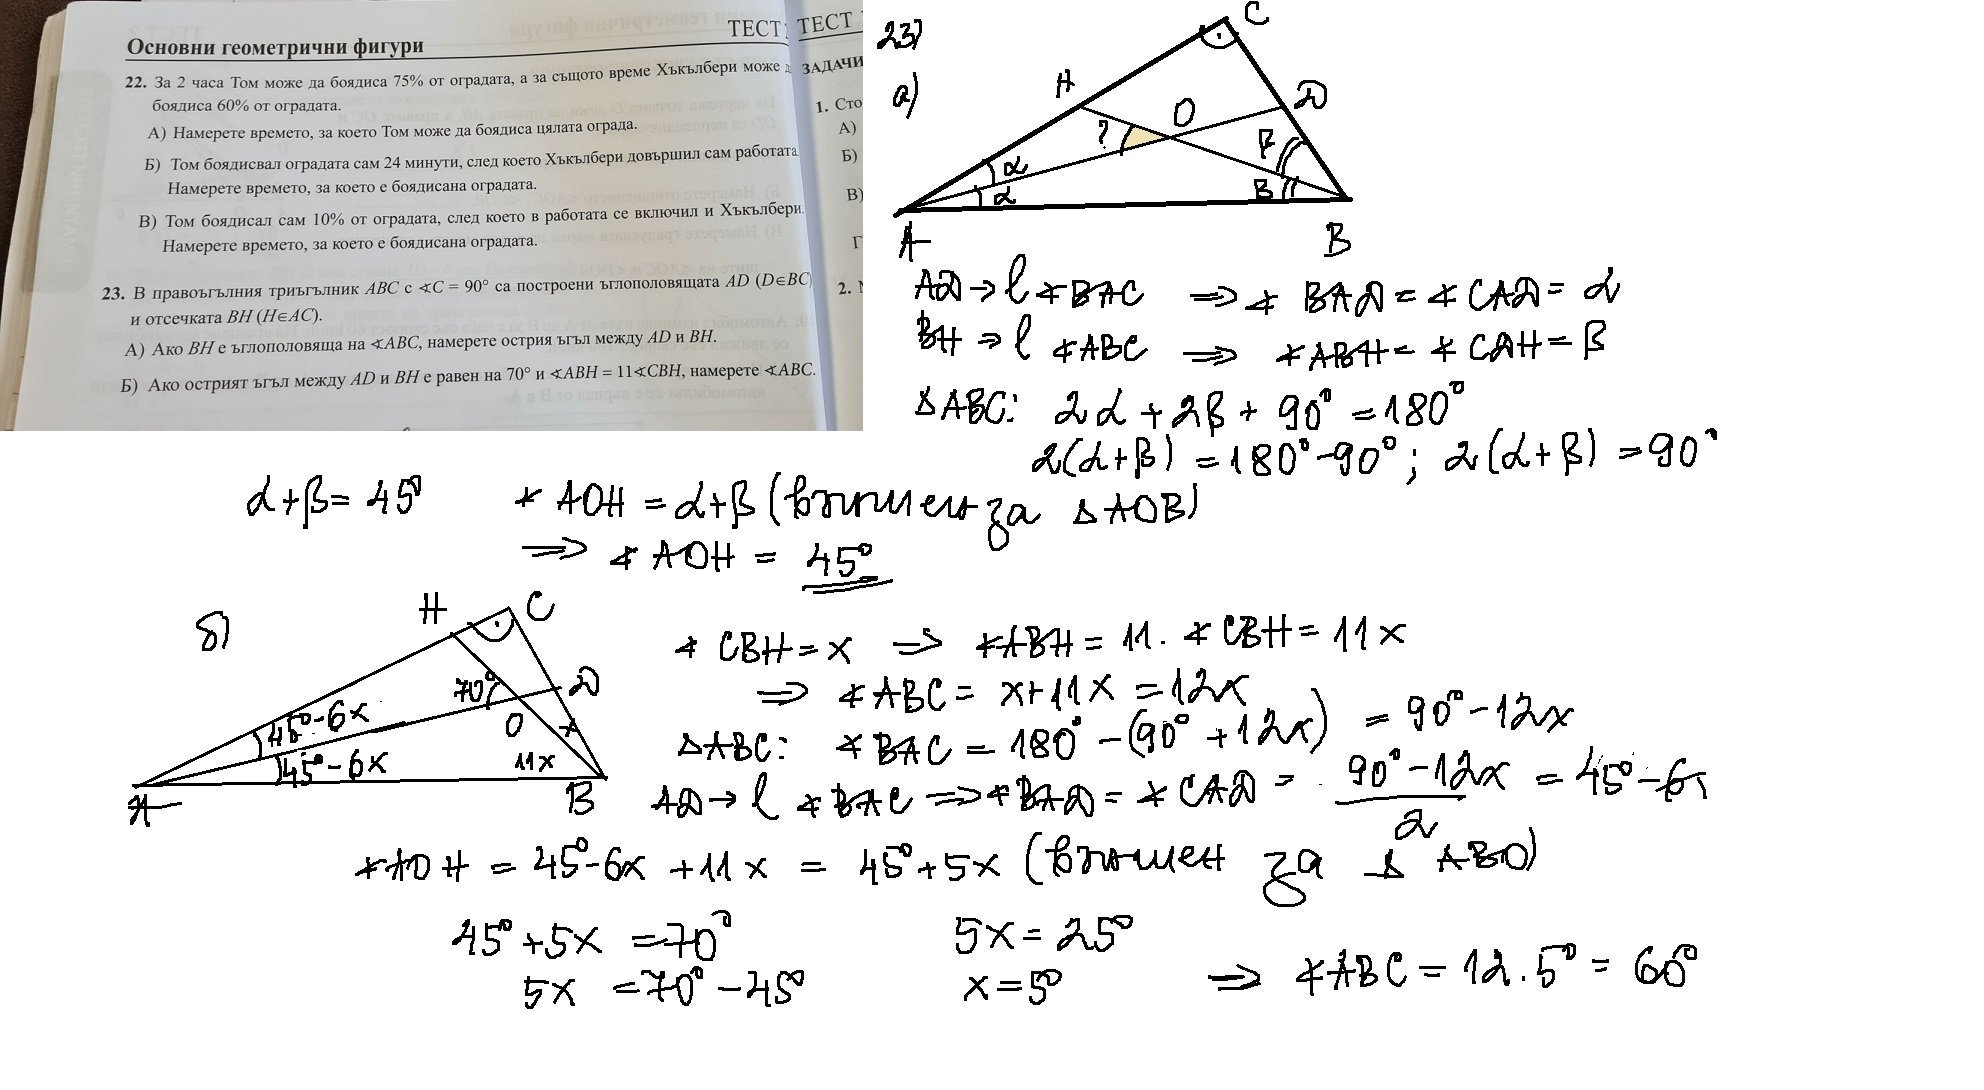 Основни геометрични фигури
ТЕСТ
ТЕСТ
22. За 2 часа Том може да боядиса 75% от оградата, а за същото време Хъкълбери може
боядиса 60% от оградата.
А) Намерете времето, за което Том може да боядиса цялата ограда.
Б) Том боядисвал оградата сам 24 минути, след което Хъкълбери довършил сам работата
Намерете времето, за което е боядисана оградата.
В) Том боядисал сам 10% от оградата, след което в работата се включил и Хъкълбери.
Намерете времето, за което е боядисана оградата.
23. В правоъгълния триъгълник ABC с ∢C = 90° са построени ъглополовящата AD (D∈BC)
и отсечката BH (H∈AC).
А) Ако BH е ъглополовяща на ∢ABC, намерете острия ъгъл между AD и BH.
Б) Ако острият ъгъл между AD и BH е равен на 70° и ∢ABH = 11∢CBH, намерете ∢ABC.
ЗАДАЧИ
1. Сто
А)
Б)
В)
Г
2.
23)
а)
C
H
O
D
?
α
α
β
β
A
B
AD → l ∢BAC ⇒ ∢ BAD = ∢ CAD = α
BH → l ∢ABC ⇒ ∢ABH = ∢ CAH = β
∆ABC: 2α + 2β + 90° = 180°
2(α+β) = 180°-90° ; 2(α+β) = 90°
α+β = 45° ∢ AOH = α+β (външен за ∆AOB)
⇒ ∢ AOH = 45°
б)
H
C
70°
D
45°-6x
O
x
45°-6x
11x
A
B
∢ CBH = x ⇒ ∢ABH = 11. ∢CBH = 11x
⇒ ∢ABC = x+11x = 12x
∆ABC: ∢BAC = 180° - (90° + 12x) = 90° - 12x
AD → l ∢BAC ⇒ ∢BAD = ∢ CAD = 90° - 12x / 2 = 45° - 6x
∢AOH = 45°-6x + 11x = 45° + 5x (външен за ∆ ABO)
45° + 5x = 70°
5x = 25°
5x = 70° - 45°
x = 5°
⇒ ∢ABC = 12.5° = 60°